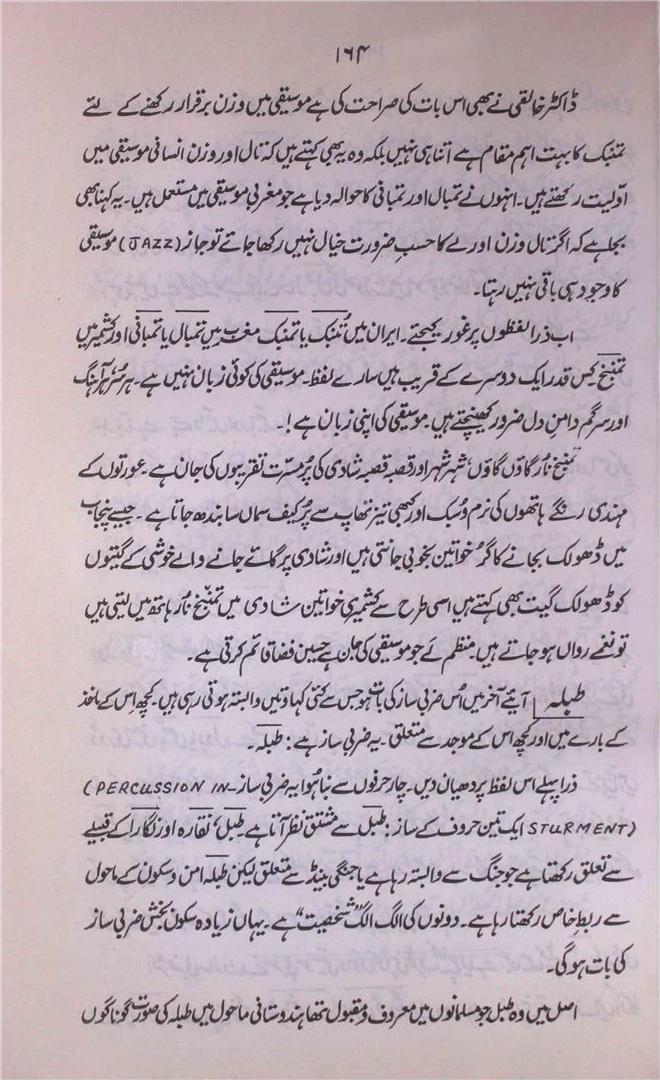 ۱۶۴
ڈاکٹر خالقی نے بھی اس بات کی صراحت کی ہے موسیقی میں وزن برقرار رکھنے کے لئے
تمنبک کا بہت اہم مقام ہے اتنا ہی نہیں بلکہ وہ یہ بھی کہتے ہیں کہ تال اور وزن انسانی موسیقی میں
اوّلیت رکھتے ہیں۔ انہوں نے تمبال اور تمبانی کا حوالہ دیا ہے جو مغربی موسیقی میں مستعمل ہیں۔ یہ کہنا بھی
بجا ہے کہ اگر تال وزن اور لے کا حسبِ ضرورت خیال نہیں رکھا جائے تو جاز (JAZZ) موسیقی
کا وجود ہی باقی نہیں رہتا۔
اب ذرا لفظوں پر غور کیجئے۔ ایران میں تُنبک یا تمنبک مغرب میں تمبال یا تمبانی اور کشمیر میں
تمنبخ کس قدر ایک دوسرے کے قریب ہیں سارے لفظ۔ موسیقی کی کوئی زبان نہیں ہے۔ ہر سُر ہر آہنگ
اور سرگم دامنِ دل ضرور کھینچتے ہیں۔ موسیقی کی اپنی زبان ہے!۔
تمنبخ نأر گاؤں گاؤں، شہر شہر اور قصبہ قصبہ شادی کی پُرمسرت تقریبوں کی جان ہے۔ عورتوں کے
مہندی رنگے ہاتھوں کی نرم و سُبک اور کبھی تیز تھاپ سے پُرکیف سماں سا بندھ جاتا ہے۔ جیسے پنجاب
میں ڈھولک بجانے کا گُر خواتین بخوبی جانتی ہیں اور شادی پر گائے جانے والے خوشی کے گیتوں
کو ڈھولک گیت بھی کہتے ہیں اسی طرح سے کشمیری خواتین شادی میں تمنبخ نأر ہاتھ میں لیتی ہیں
تو نغمے رواں ہو جاتے ہیں۔ منظم لَے جو موسیقی کی جان ہے حسین فضا قائم کرتی ہے۔
طبلہ | آیئے آخر میں اُس ضربی ساز کی بات ہو جس سے کئی کہاوتیں وابستہ ہوتی رہی ہیں۔ کچھ اس کے ماخذ
کے بارے میں اور کچھ اس کے موجد سے متعلق۔ یہ ضربی ساز ہے: طبلہ۔
ذرا پہلے اس لفظ پر دھیان دیں۔ چار حرفوں سے بنا ہُوا یہ ضربی ساز (PERCUSSION IN-
STURMENT) ایک تین حروف کے ساز: طبل سے مشتق نظر آتا ہے طبل، نقارہ اور نگارا کے قبیلے
سے تعلق رکھتا ہے جو جنگ سے وابستہ رہا ہے یا جنگی بینڈ سے متعلق لیکن طبلہ امن و سکون کے ماحول
سے ربطِ خاص رکھتا رہا ہے۔ دونوں کی الگ الگ "شخصیت" ہے۔ یہاں زیادہ سکون بخش ضربی ساز
کی بات ہوگی۔
اصل میں وہ طبل جو مسلمانوں میں معروف و مقبول تھا ہندوستانی ماحول میں طبلہ کی صورت گوناگوں